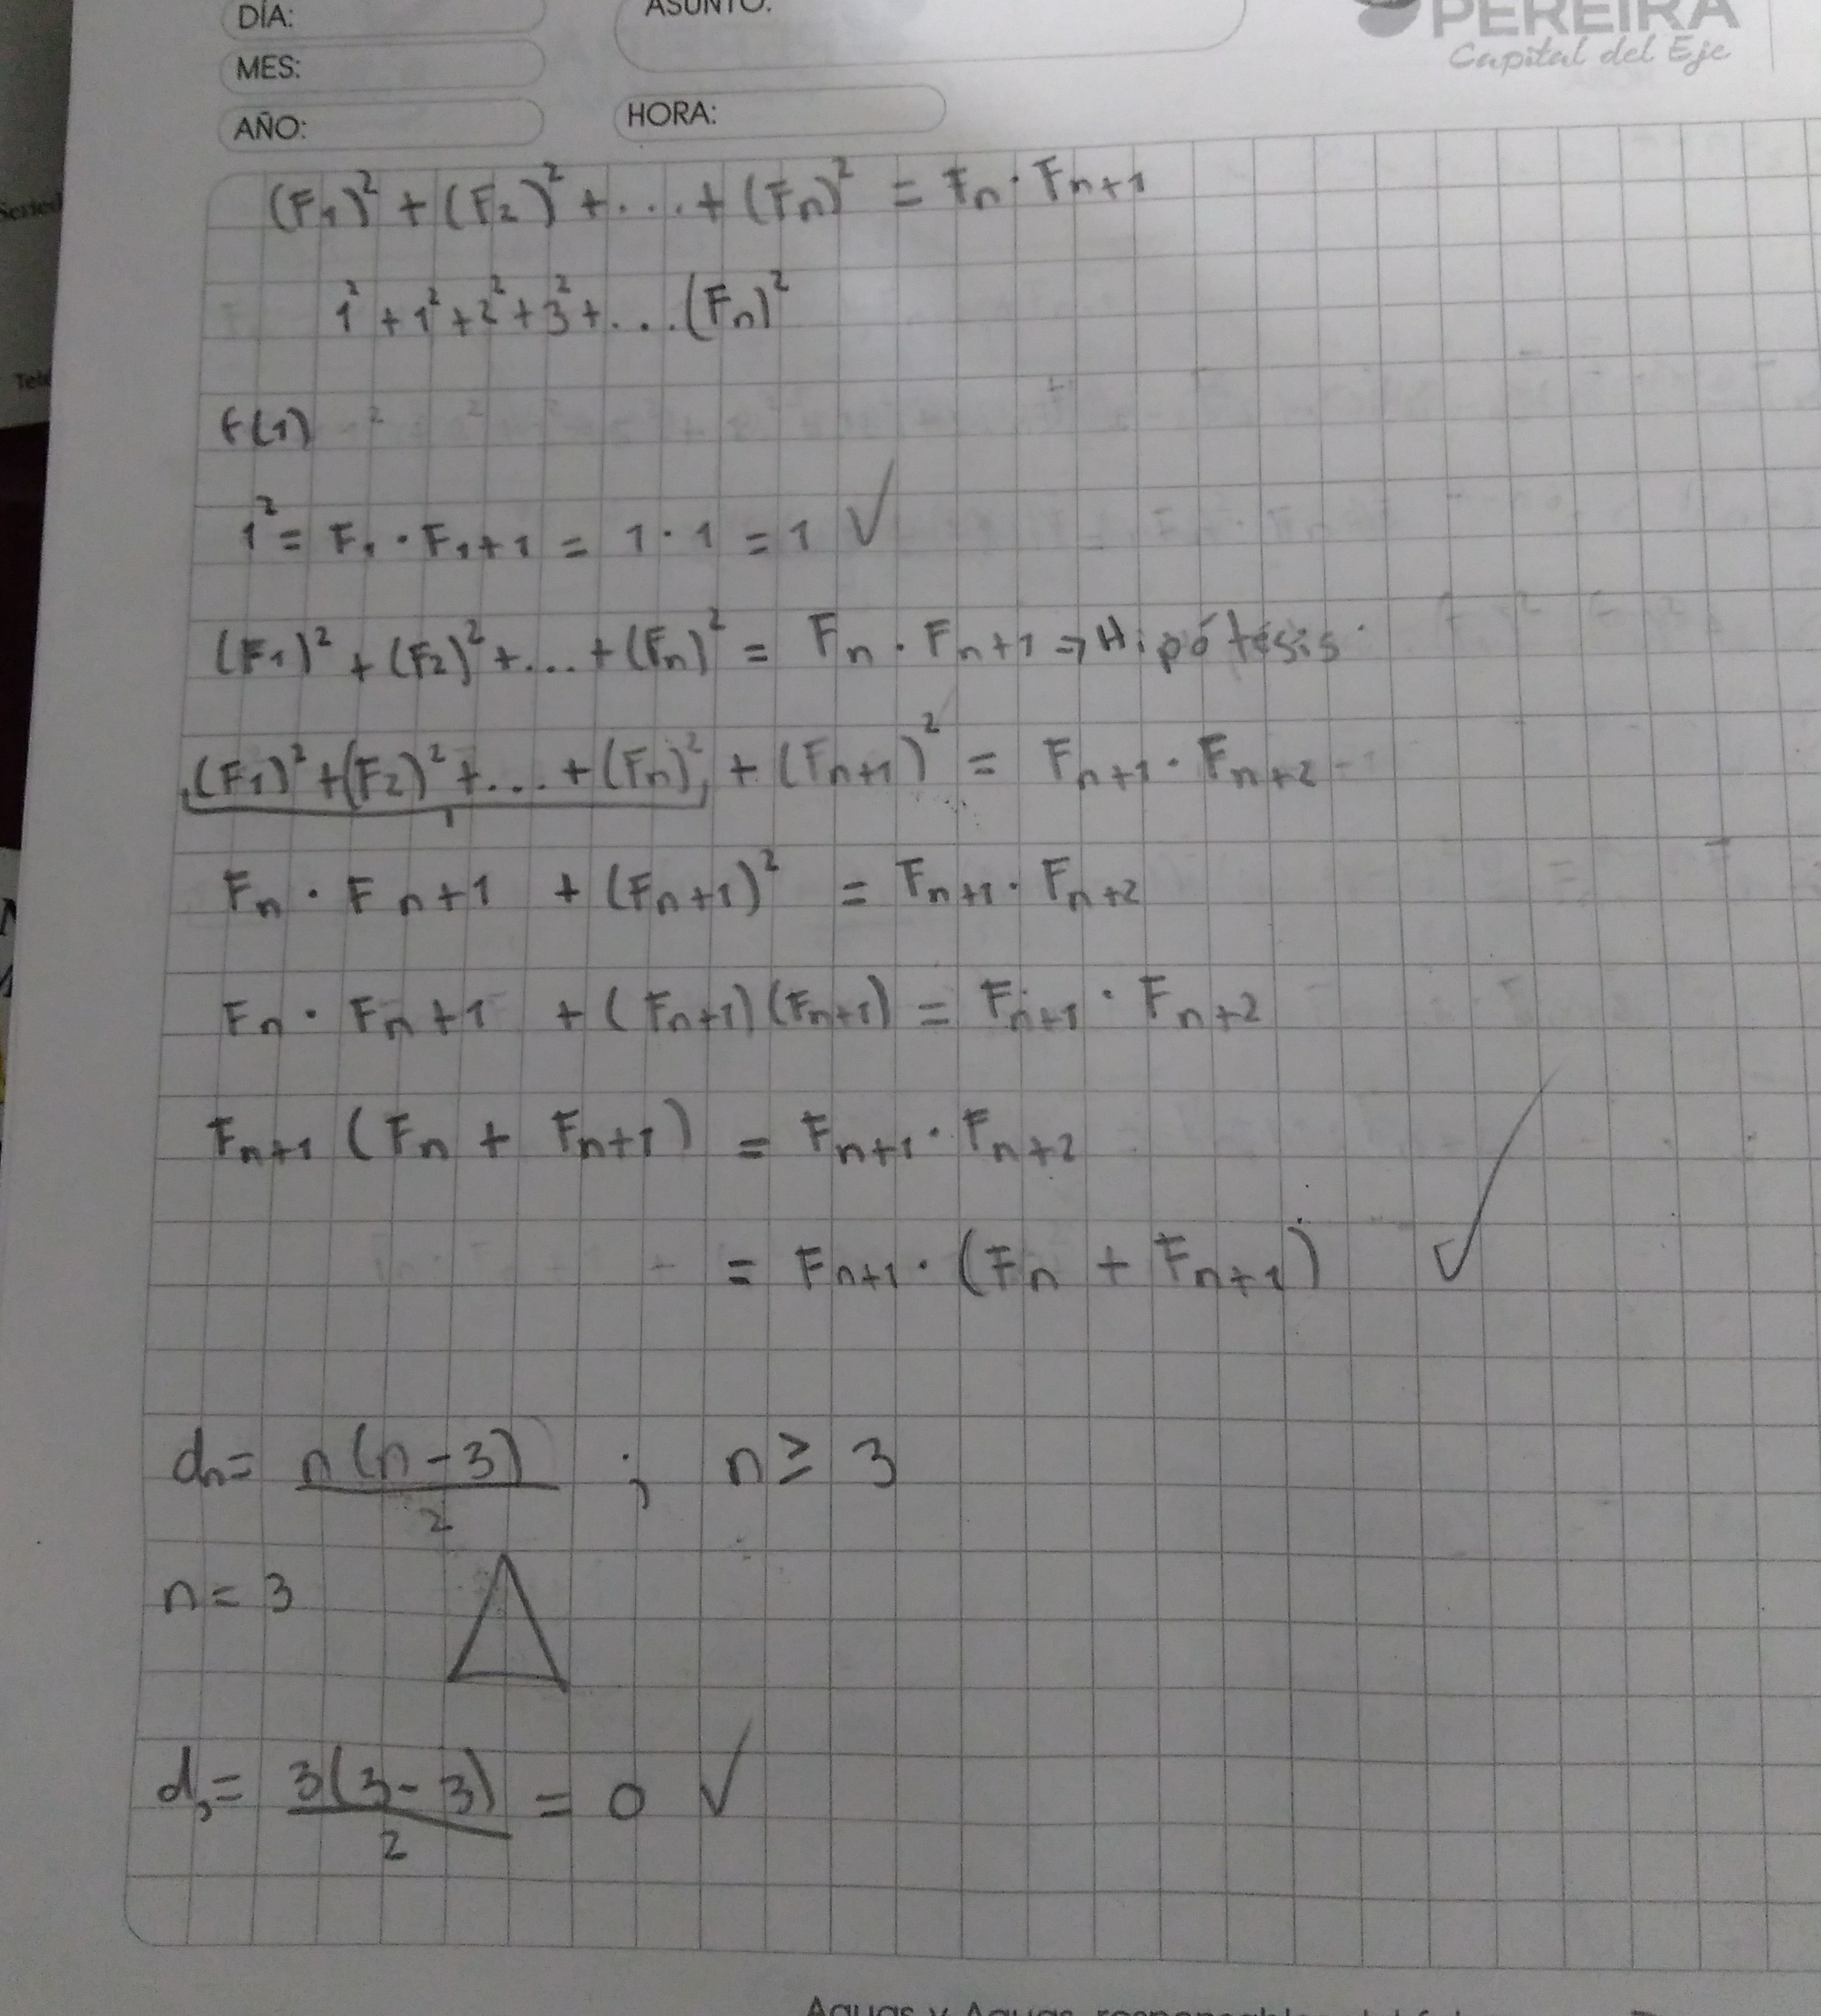 DÍA:
ASUNTO:
PEREIRA
Capital del Eje
MES:
AÑO:
HORA:
(F₁)² + (F₂)² + ... + (Fₙ)² = Fₙ · Fₙ₊₁
1² + 1² + 2² + 3² + ... (Fₙ)²
F(1)
1² = F₁ · F₁₊₁ = 1 · 1 = 1 ✓
(F₁)² + (F₂)² + ... + (Fₙ)² = Fₙ · Fₙ₊₁ ⇒ Hipótesis
(F₁)² + (F₂)² + ... + (Fₙ)² + (Fₙ₊₁)² = Fₙ₊₁ · Fₙ₊₂
Fₙ · Fₙ₊₁ + (Fₙ₊₁)² = Fₙ₊₁ · Fₙ₊₂
Fₙ · Fₙ₊₁ + (Fₙ₊₁)(Fₙ₊₁) = Fₙ₊₁ · Fₙ₊₂
Fₙ₊₁ (Fₙ + Fₙ₊₁) = Fₙ₊₁ · Fₙ₊₂
= Fₙ₊₁ · (Fₙ + Fₙ₊₁) ✓
dₙ = n(n-3)/2 ; n ≥ 3
n = 3
d₃ = 3(3-3)/2 = 0 ✓